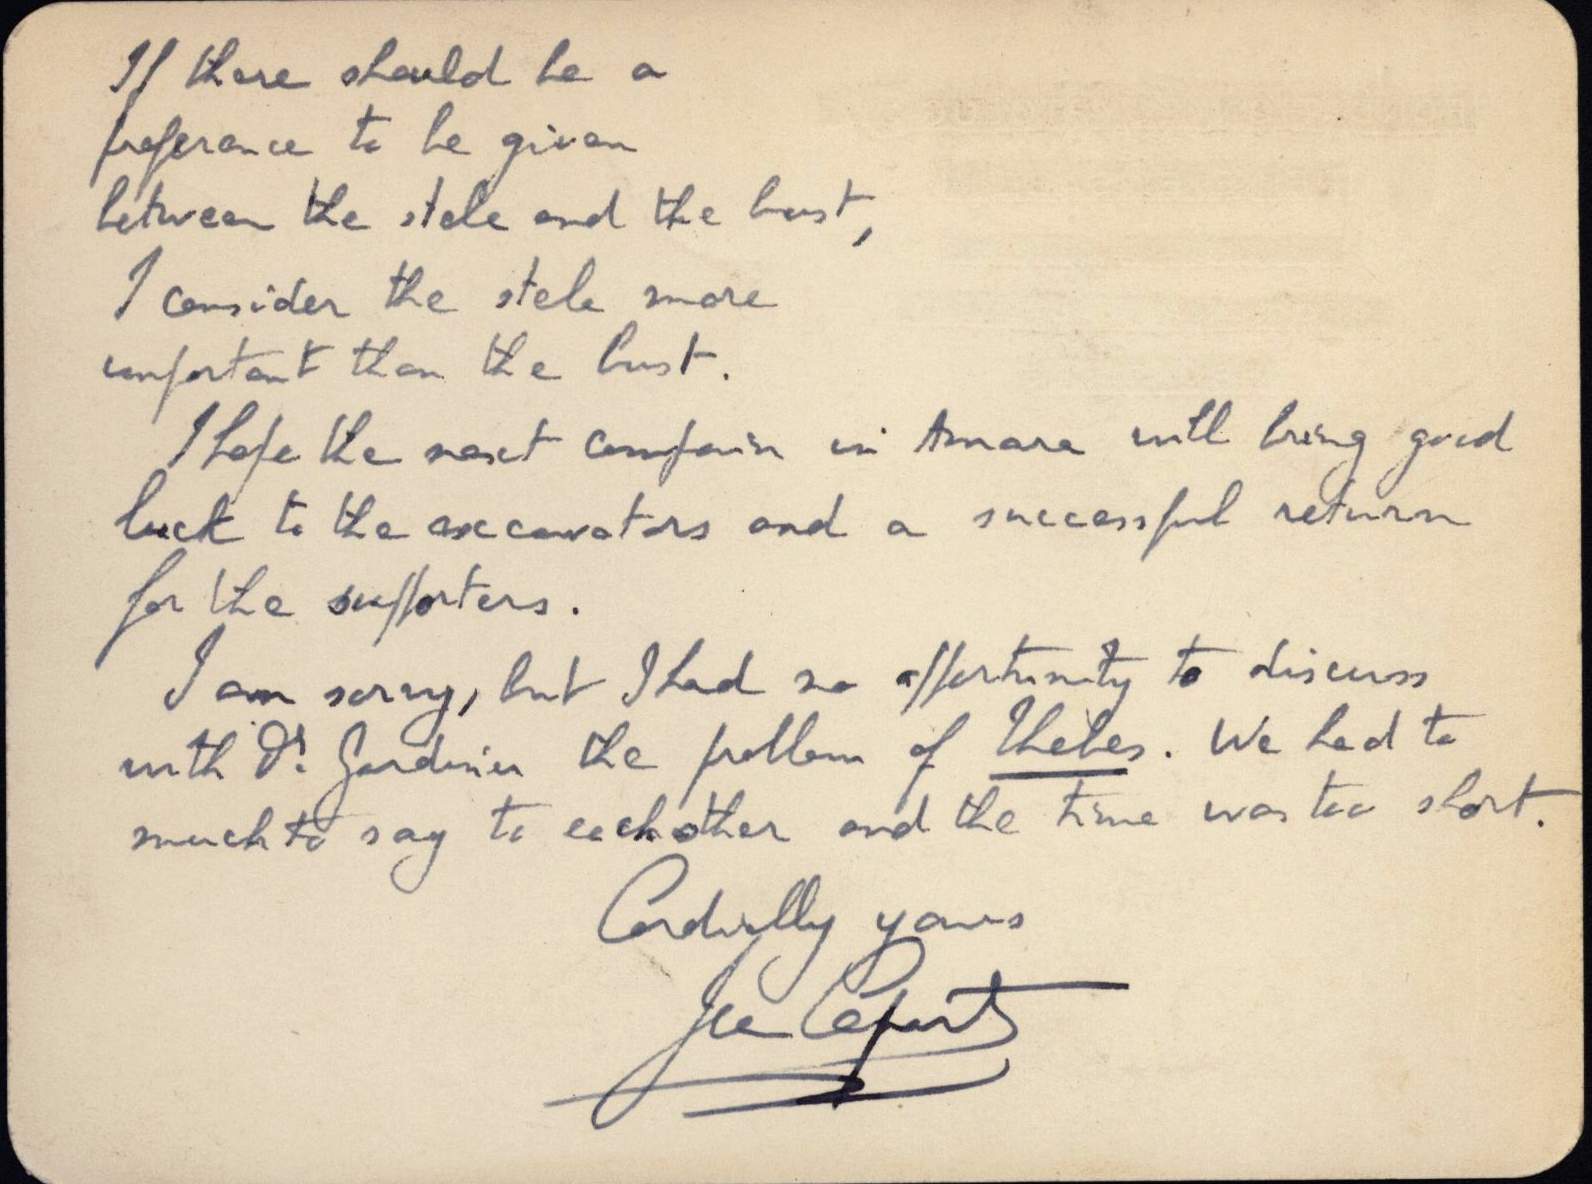 If there should be a
preference to be given
between the stele and the bust,
I consider the stele more
important than the bust.
I hope the next campain in Amara will bring good
luck to the excavators and a successful return
for the supporters.
I am sorry, but I had no opportunity to discuss
with Dr. Gardiner the problem of Thebes. We had to
much to say to each other and the time was too short.
Cordially yours
Jean Capart